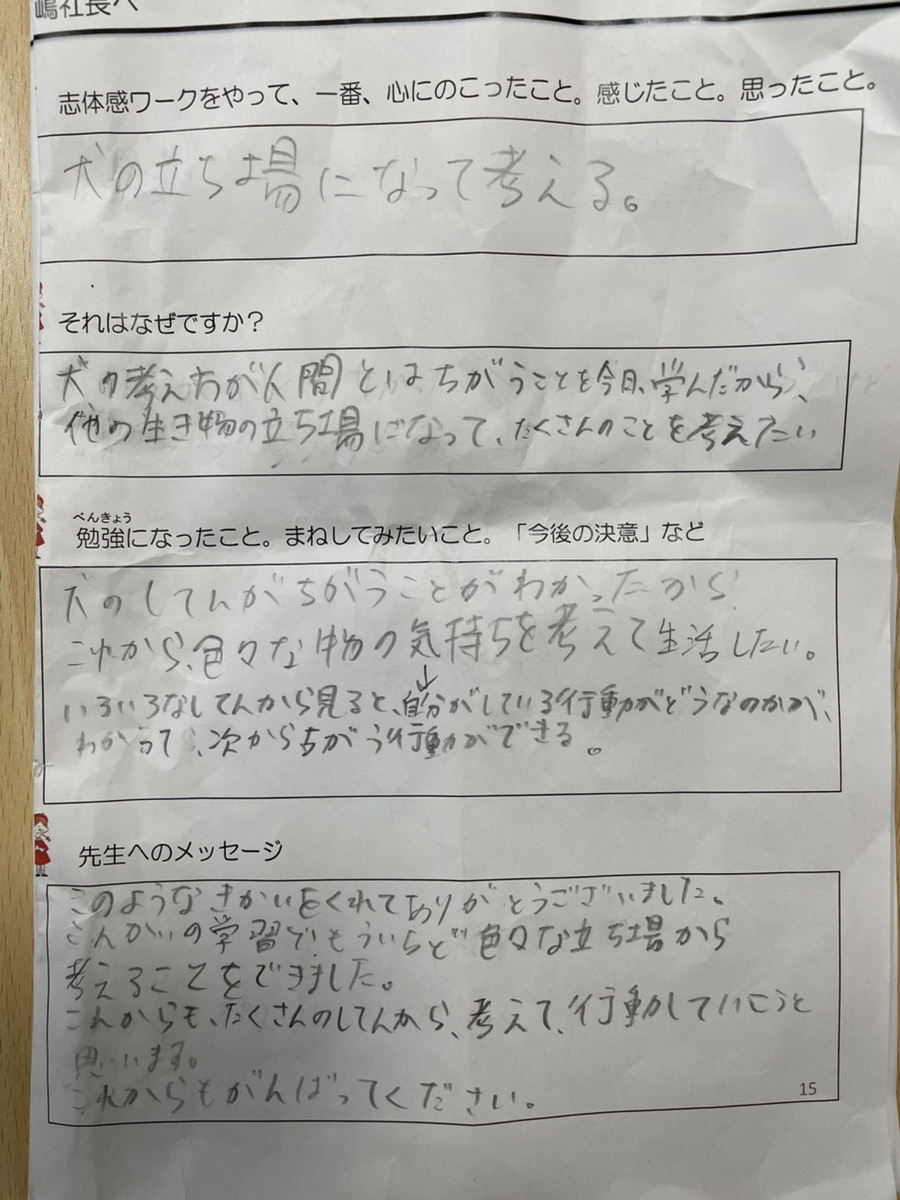 嶋社長へ
志体感ワークをやって、一番、心にのこったこと。感じたこと。思ったこと。
犬の立ち場になって考える。
それはなぜですか？
犬の考えわが人間とはちがうことを今日、学んだから、
他の生き物の立ち場になって、たくさんのことを考えたい
べんきょう
勉強になったこと。まねしてみたいこと。「今後の決意」など
犬のしてんがちがうことがわかったから
これから、色々な物の気持ちを考えて生活したい。
↓
いろいろなしてんから見ると、自分がしている行動がどうなのかが、
わかって、次からちがう行動ができる。
先生へのメッセージ
このようなきかいをくれてありがとうございました。
こんかいの学習でもういちど色々な立ち場から
考えることをできました。
これからも、たくさんのしてんから、考えて、行動していこうと
思います。
これからもがんばってください。
15